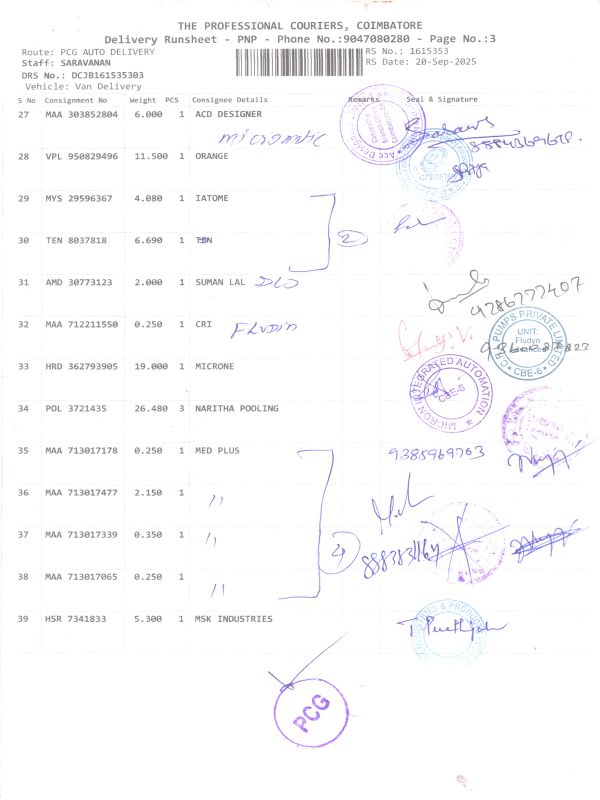 THE PROFESSIONAL COURIERS, COIMBATORE
Delivery Runsheet - PNP - Phone No.:9047080280 - Page No.:3
Route: PCG AUTO DELIVERY RS No.: 1615353
Staff: SARAVANAN RS Date: 20-Sep-2025
DRS No.: DCJB161535303
Vehicle: Van Delivery
S No Consignment No Weight PCS Consignee Details Remarks Seal & Signature
27 MAA 303852804 6.000 1 ACD DESIGNER
28 VPL 950829496 11.500 1 ORANGE
29 MYS 29596367 4.080 1 IATOME
30 TEN 8037818 6.690 1
2
31 AMD 30773123 2.000 1 SUMAN LAL
9286777407
32 MAA 712211550 0.250 1 CRI Fludin
C.R.I. PUMPS PRIVATE LIMITED
UNIT:
Fludyn
CBE-6
33 HRD 362793905 19.000 1 MICRONE
MICRON INTEGRATED AUTOMATION
CBE-6
34 POL 3721435 26.480 3 NARITHA POOLING
35 MAA 713017178 0.250 1 MED PLUS 9385969703
36 MAA 713017477 2.150 1 "
37 MAA 713017339 0.350 1 "
4
38 MAA 713017065 0.250 1 "
39 HSR 7341833 5.300 1 MSK INDUSTRIES
PCG